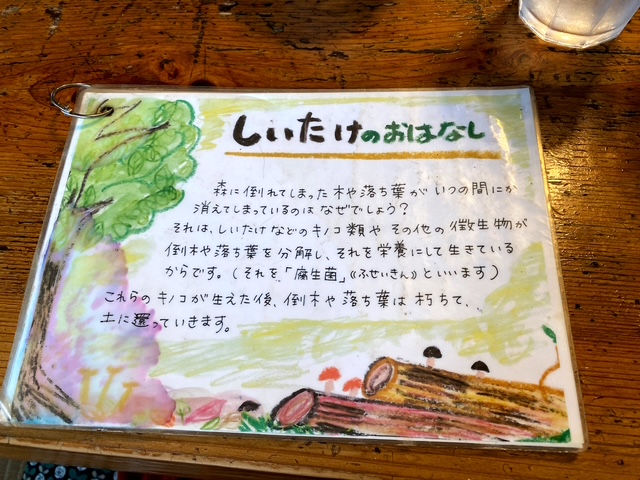 しいたけのおはなし
森に倒れてしまった木や落ち葉がいつの間にか
消えてしまっているのはなぜでしょう？
それは、しいたけなどのキノコ類やその他の微生物が
倒木や落ち葉を分解し、それを栄養にして生きている
からです。(それを「腐生菌」《ふせいきん》といいます)
これらのキノコが生えた後、倒木や落ち葉は朽ちて、
土に還っていきます。